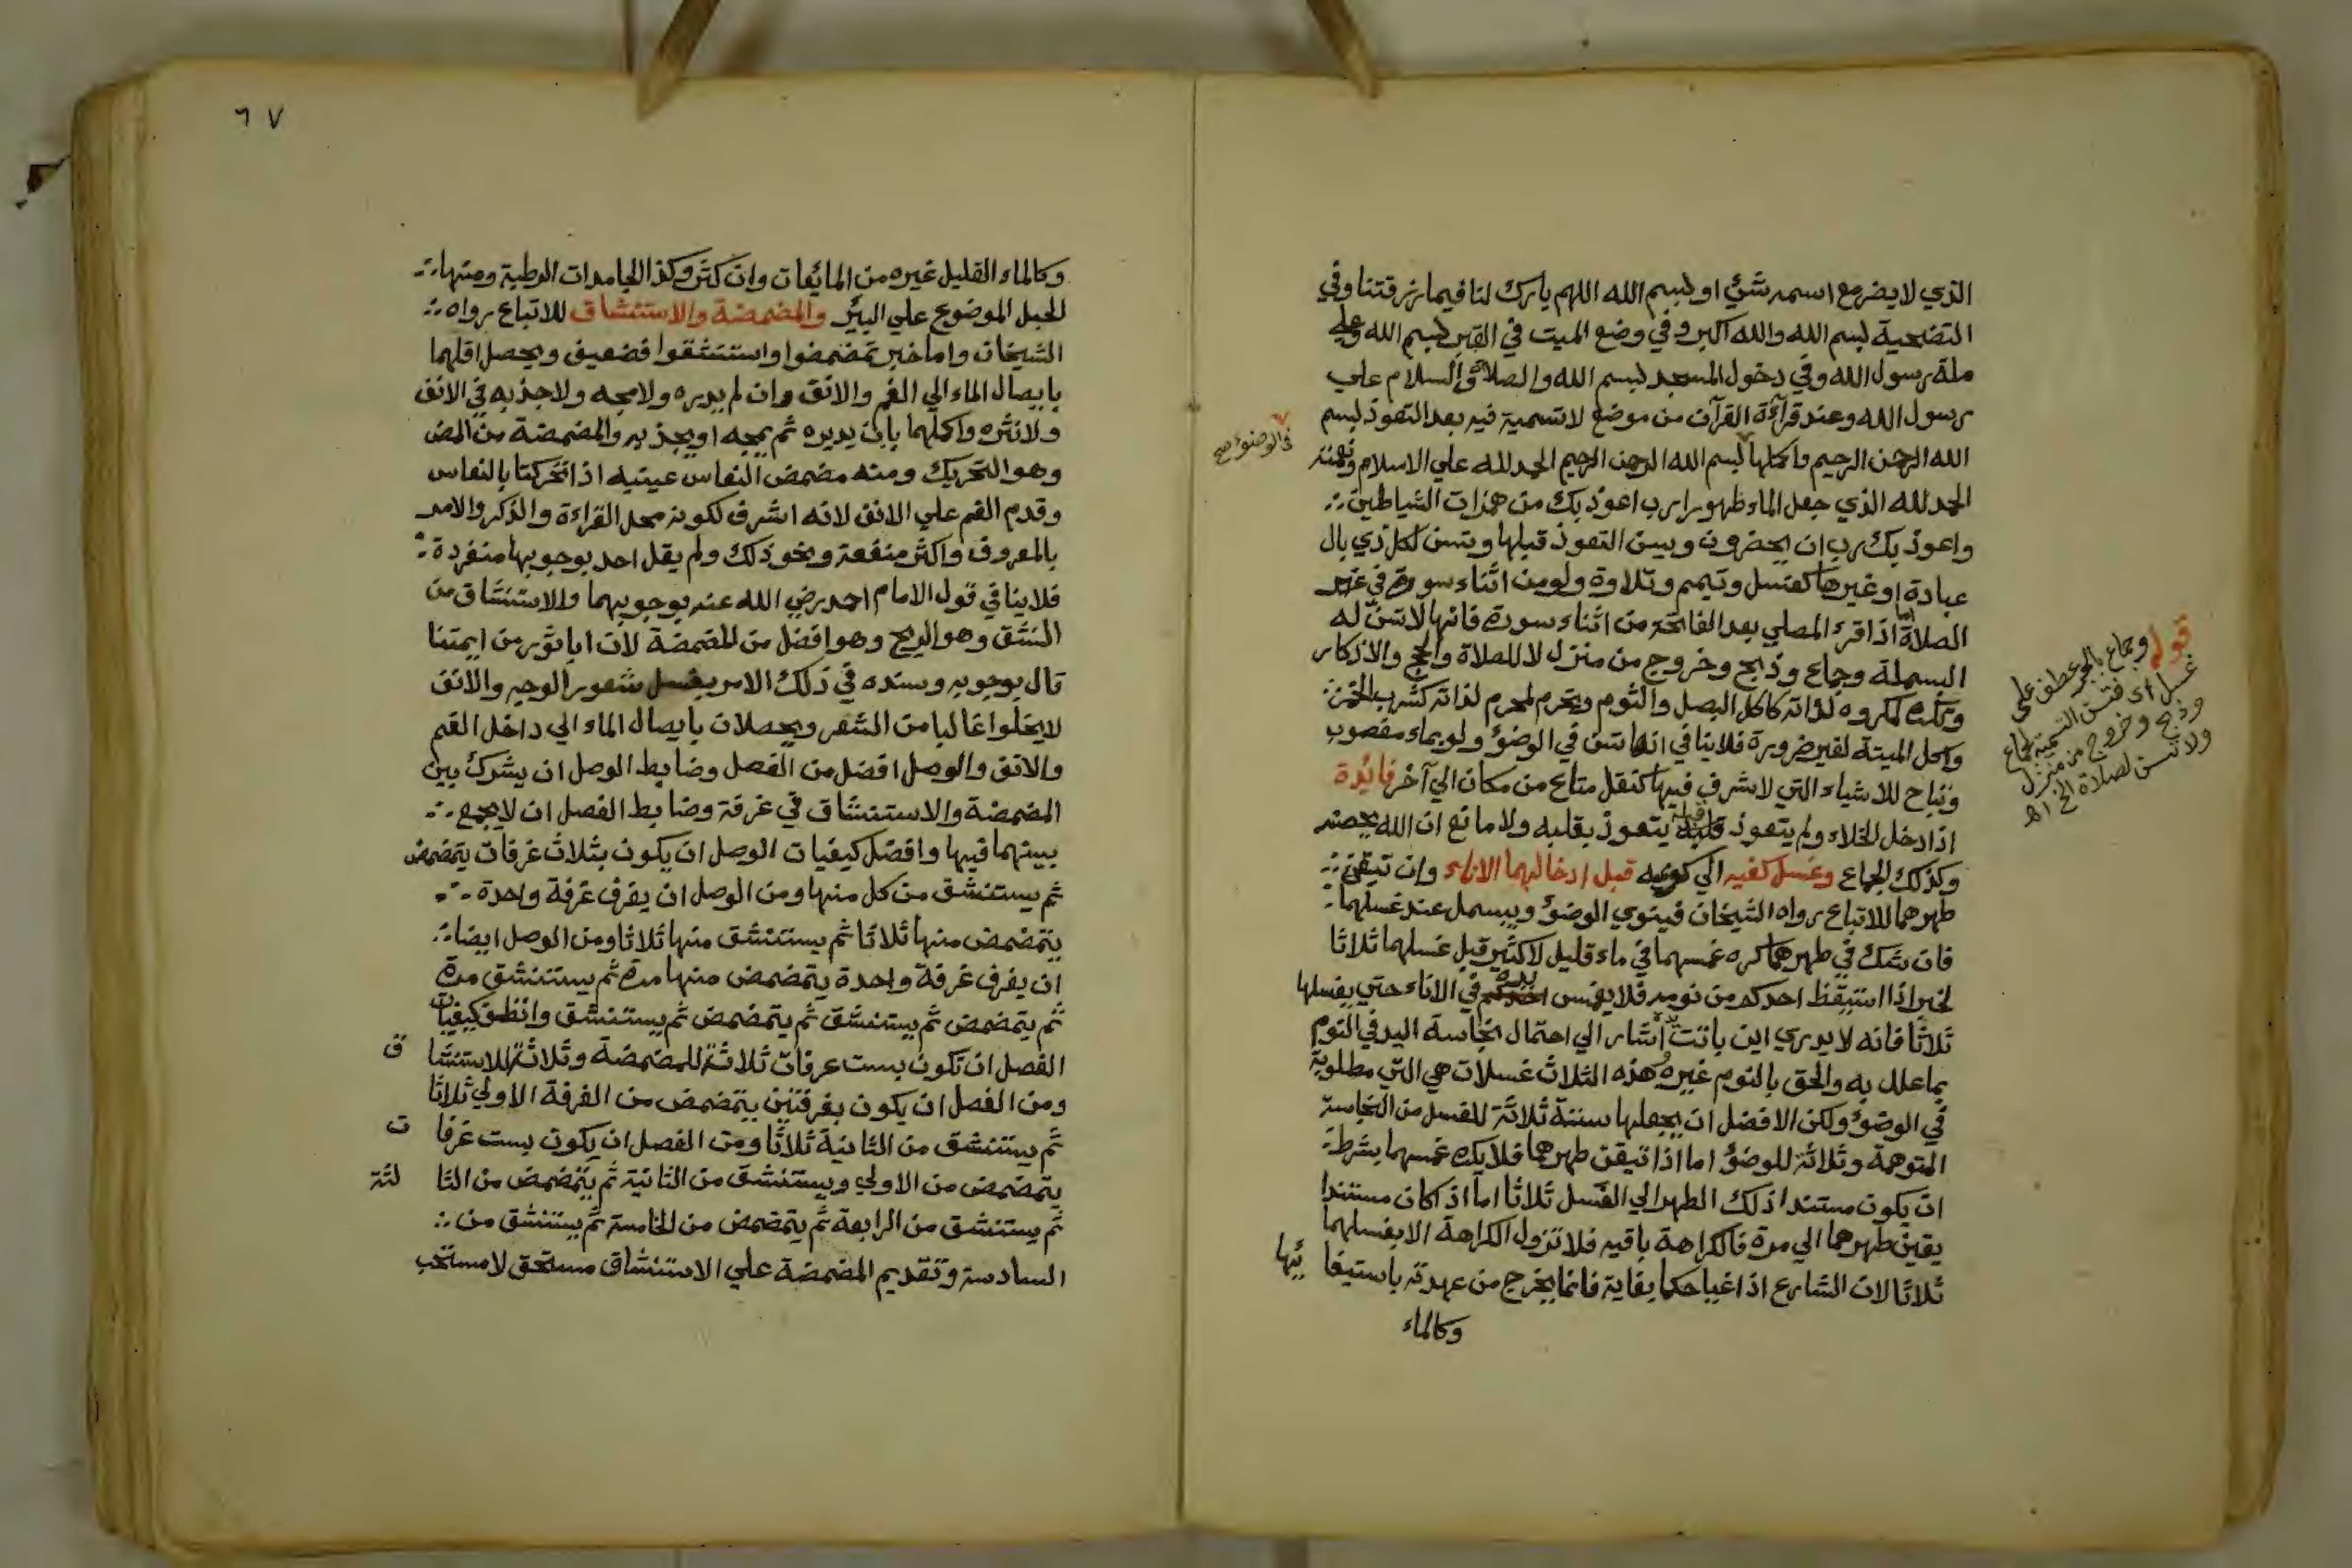 الذي لا يضر مع اسمه شئ او بسم الله اللهم بارك لنا فيما رزقتنا وفي
التضحية بسم الله والله اكبر وفي وضع الميت في القبر بسم الله وعلي
ملة رسول الله وفي دخول المسجد بسم الله والصلاة والسلام علي
رسول الله وعند قرآءة القرآن من موضع لا تسمية فيه بعد التعوذ بسم
الله الرحمن الرحيم واكملها بسم الله الرحمن الرحيم الحمد لله علي الاسلام ونعمته
في الوضوء صح
الحمد لله الذي جعل الماء طهورا رب اعوذ بك من همزات الشياطين
واعوذ بك رب ان يحضرون ويسن التعوذ قبلها وتسن لكل ذي بال
عبادة او غيرها كغسل وتيمم وتلاوة ولو من اثناء سورة في غير
الصلاة اما اذا قرء المصلي بعد الفاتحة من اثناء سورة فانها لا تسن له
البسملة وجماع وذبح وخروج من منزل لا للصلاة والحج والاذكار
وتكره لمكروه لذاته كاكل البصل والثوم وتحرم لمحرم لذاته كشرب الخمر
واكل الميتة لغير ضرورة فلا ينافي انها تسن في الوضؤ ولو بماء مغصوب
وتباح للاشياء التي لا شرف فيها كنقل متاع من مكان الي آخر فايدة
اذا دخل الخلاء ولم يتعوذ قبله يتعوذ بقلبه ولا مانع ان الله يحصنه
وكذلك الجماع وغسل كفيه الي كوعيه قبل ادخالهما الاناء وان تيقن
طهرهما للاتباع رواه الشيخان فينوي الوضؤ ويبسمل عند غسلهما
فان شك في طهرهما كره غمسهما في ماء قليل لا كثير قبل غسلهما ثلاثا
لخبر اذا استيقظ احدكم من نومه فلا يغمس يده في الاناء حتي يغسلها
ثلاثا فانه لا يدري اين باتت يده اشار الي احتمال نجاسة اليد في النوم
بما علل به والحق بالنوم غيره وهذه الثلاث غسلات هي التي مطلوبة
في الوضؤ ولكن الافضل ان يجعلها ستة ثلاثة للغسل من النجاسة
المتوهمة وثلاثة للوضؤ اما اذا تيقن طهرهما فلا يكره غمسهما بشرط
ان يكون مستند اذلك الطهر الي الغسل ثلاثا اما اذ اكان مستندا
يقين طهرهما الي مرة فالكراهة باقيه فلا تزول الكراهة الا بغسلهما
ثلاثا لان الشارع اذا غيا حكما بغاية فانما يخرج من عهدته باستيفا ئها
وكالماء
قوله وجماع بالجر عطف على
غسل اي فتسن التسمية لجماع
وذبح وخروج من منزل
ولا تسن لصلاة الخ اهـ
٦٧
وكالماء القليل غيره من المائعات وان كثر وكذا الجامدات الرطبة ومنها
الحبل الموضوع علي البئر والمضمضة والاستنشاق للاتباع رواه
الشيخان واما خبر تمضمضوا واستنشقوا فضعيف ويحصل اقلهما
بايصال الماء الي الفم والانف وان لم يديره ولا مجه ولا جذبه في الانف
ولا نثره واكملهما بان يديره ثم يمجه او يجذبه والمضمضة من المض
وهو التحريك ومنه مضمض النعاس عينيه اذا تحركتا بالنعاس
وقدم الفم علي الانف لانه اشرف لكونه محل القراءة والذكر والامر
بالمعروف واكثر منفعة ونحو ذلك ولم يقل احد بوجوبها منفردة
فلا ينافي قول الامام احمد رضي الله عنه بوجوبهما والاستنشاق من
النشق وهو الريح وهو افضل من المضمضة لان ابا ثور من ايمتنا
قال بوجوبه وسنده في ذلك الامر بغسل شعور الوجه والانف
لا يخلوا غالبا من الشعر ويحصلان بايصال الماء الي داخل الفم
والانف والوصل افضل من الفصل وضابط الوصل ان يشرك بين
المضمضة والاستنشاق في غرفة وضابط الفصل ان لا يجمع
بينهما فيها وافضل كيفيات الوصل ان يكون بثلاث غرفات يتمضمض
ثم يستنشق من كل منها ومن الوصل ان يغرف غرفة واحدة
يتمضمض منها ثلاثا ثم يستنشق منها ثلاثا ومن الوصل ايضا
ان يغرف غرفة واحدة يتمضمض منها مرة ثم يستنشق مرة
ثم يتمضمض ثم يستنشق ثم يتمضمض ثم يستنشق وانظف كيفيات
الفصل ان تكون بست غرفات ثلاثة للمضمضة وثلاثة للاستنشا ق
ومن الفصل ان يكون بغرفتين يتمضمض من الغرفة الاولي ثلاثا
ثم يستنشق من الثانية ثلاثا ومن الفصل ان يكون بست غرفا ت
يتمضمض من الاولي ويستنشق من الثانية ثم يتمضمض من الثا لثة
ثم يستنشق من الرابعة ثم يتمضمض من الخامسة ثم يستنشق من
السادسة وتقديم المضمضة علي الاستنشاق مستحق لا مستحب